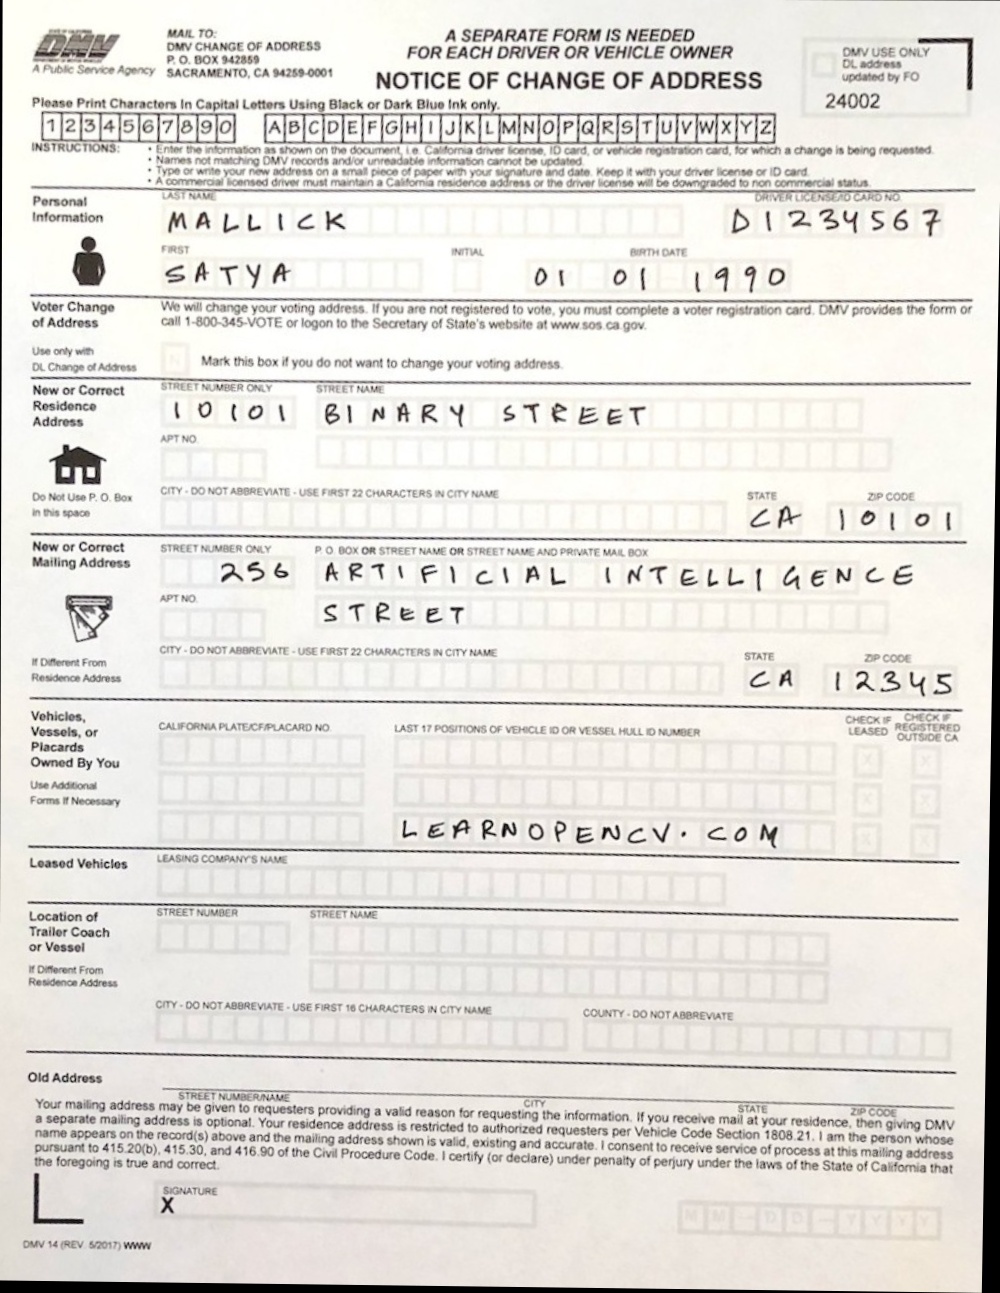 STATE OF CALIFORNIA
DMV
DEPARTMENT OF MOTOR VEHICLES
A Public Service Agency
MAIL TO:
DMV CHANGE OF ADDRESS
P. O. BOX 942859
SACRAMENTO, CA 94259-0001
A SEPARATE FORM IS NEEDED
FOR EACH DRIVER OR VEHICLE OWNER
NOTICE OF CHANGE OF ADDRESS
DMV USE ONLY
DL address
updated by FO
24002
Please Print Characters In Capital Letters Using Black or Dark Blue Ink only.
1 2 3 4 5 6 7 8 9 0 A B C D E F G H I J K L M N O P Q R S T U V W X Y Z
INSTRUCTIONS: • Enter the information as shown on the document, i.e. California driver license, ID card, or vehicle registration card, for which a change is being requested.
• Names not matching DMV records and/or unreadable information cannot be updated.
• Type or write your new address on a small piece of paper with your signature and date. Keep it with your driver license or ID card.
• A commercial licensed driver must maintain a California residence address or the driver license will be downgraded to non commercial status.
Personal
Information
LAST NAME
DRIVER LICENSE/ID CARD NO.
MALLICK
D1234567
FIRST
INITIAL
BIRTH DATE
SATYA
01 01 1990
Voter Change
of Address
We will change your voting address. If you are not registered to vote, you must complete a voter registration card. DMV provides the form or
call 1-800-345-VOTE or logon to the Secretary of State's website at www.sos.ca.gov.
Use only with
DL Change of Address
N
Mark this box if you do not want to change your voting address.
New or Correct
Residence
Address
STREET NUMBER ONLY
STREET NAME
10101
BINARY STREET
APT NO.
Do Not Use P. O. Box
in this space
CITY - DO NOT ABBREVIATE - USE FIRST 22 CHARACTERS IN CITY NAME
STATE
ZIP CODE
CA
10101
New or Correct
Mailing Address
STREET NUMBER ONLY
P. O. BOX OR STREET NAME OR STREET NAME AND PRIVATE MAIL BOX
256
ARTIFICIAL INTELLIGENCE
APT NO.
STREET
If Different From
Residence Address
CITY - DO NOT ABBREVIATE - USE FIRST 22 CHARACTERS IN CITY NAME
STATE
ZIP CODE
CA
12345
Vehicles,
Vessels, or
Placards
Owned By You
Use Additional
Forms If Necessary
CALIFORNIA PLATE/CF/PLACARD NO.
LAST 17 POSITIONS OF VEHICLE ID OR VESSEL HULL ID NUMBER
CHECK IF
LEASED
CHECK IF
REGISTERED
OUTSIDE CA
X X
X X
X X
LEARNOPENCV.COM
Leased Vehicles
LEASING COMPANY'S NAME
Location of
Trailer Coach
or Vessel
If Different From
Residence Address
STREET NUMBER
STREET NAME
CITY - DO NOT ABBREVIATE - USE FIRST 16 CHARACTERS IN CITY NAME
COUNTY - DO NOT ABBREVIATE
Old Address
STREET NUMBER/NAME
CITY
STATE
ZIP CODE
Your mailing address may be given to requesters providing a valid reason for requesting the information. If you receive mail at your residence, then giving DMV
a separate mailing address is optional. Your residence address is restricted to authorized requesters per Vehicle Code Section 1808.21. I am the person whose
name appears on the record(s) above and the mailing address shown is valid, existing and accurate. I consent to receive service of process at this mailing address
pursuant to 415.20(b), 415.30, and 416.90 of the Civil Procedure Code. I certify (or declare) under penalty of perjury under the laws of the State of California that
the foregoing is true and correct.
SIGNATURE
X
M M — D D — Y Y Y Y
DMV 14 (REV. 5/2017) WWW